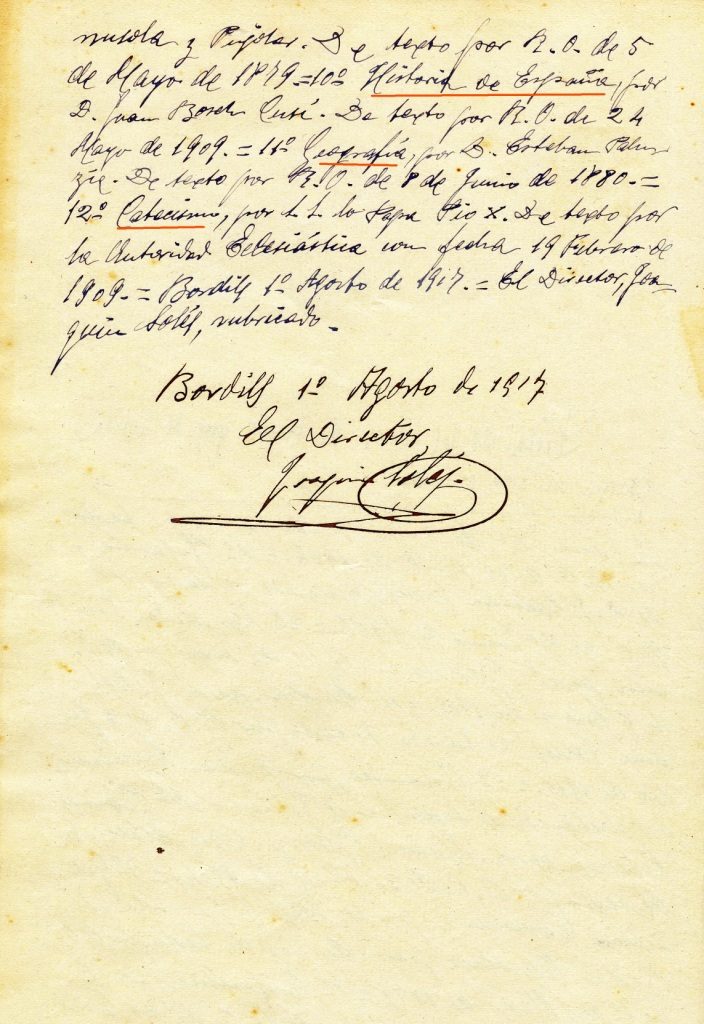 nusola y Pujolar. De texto por R. O. de 5
de Mayo de 1879.=10º Historia de España, por
D. Juan Bosch Cusí. De texto por R. O. de 24
Mayo de 1909.= 11º Geografía, por D. Esteban Paluz
zie. De texto por R. O. de 8 de Junio de 1880.=
12º Catecismo, por S. S. lo Papa Pio X. De texto por
la Autoridad Eclesiástica con fecha 19 Febrero de
1909.= Bordils 1º Agosto de 1917.= El Director, Joa
quin Solés, rubricado.
Bordils 1º Agosto de 1917
El Director,
Joaquin Solés.